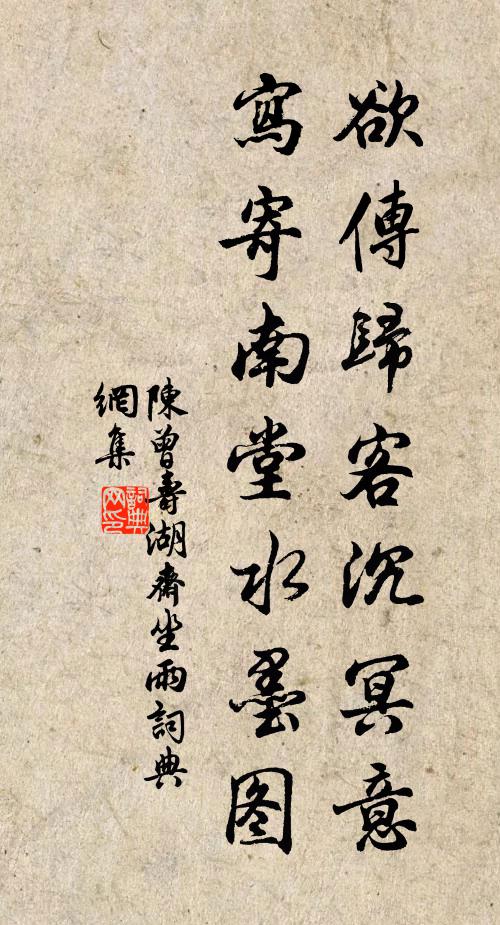 欲傳歸客沉冥意
寫寄南堂水墨图
陳曾壽湖齋坐雨詞典
網集
詞典
网印